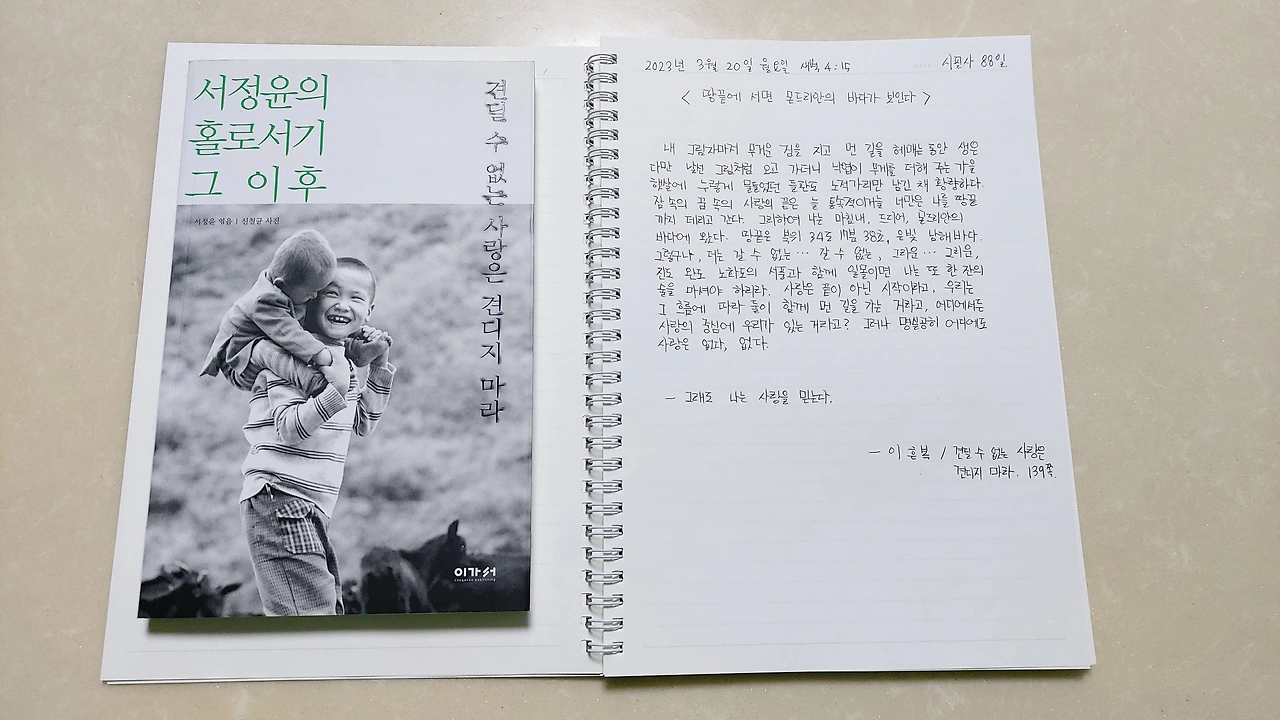 서정윤의
홀로서기
그 이후
서정윤 엮음 | 신철균 사진
견딜 수 없는 사랑은 견디지 마라
이가서
2023년 3월 20일 월요일 새벽 4:15
시필사 88일
< 땅끝에 서면 몬드리안의 바다가 보인다 >
내 그림자마저 무거운 짐을 지고 먼 길을 헤매는 동안 생은
다만 낯선 그림처럼 오고 가더니 낙엽이 무게를 더해 주는 가을
햇살에 누렇게 물들었던 들판도 노적가리만 남긴 채 황량하다.
잠 속의 꿈 속의 사랑의 끝은 늘 톱속적이거늘 너만은 나를 땅끝
까지 데리고 간다. 그리하여 나는 마침내, 드디어, 몬드리안의
바다에 왔다. 땅끝은 북위 34도 17분 38초, 은빛 남해바다.
그렇구나, 더는 갈 수 없는… 갈 수 없는, 그리운… 그리움,
진도 완도 노화도의 서풍과 함께 일몰이면 나는 또 한 잔의
술을 마셔야 하리라. 사랑은 끝이 아닌 시작이라고, 우리는
그 흐름에 따라 둘이 함께 먼 길을 가는 거라고, 어디에서든
사랑의 중심에 우리가 있는 거라고? 그러나 명실공히 어디에도
사랑은 없다, 없다.
— 그래도 나는 사랑을 믿는다.
— 이흔복 / 견딜 수 없는 사랑은
견디지 마라. 139쪽.